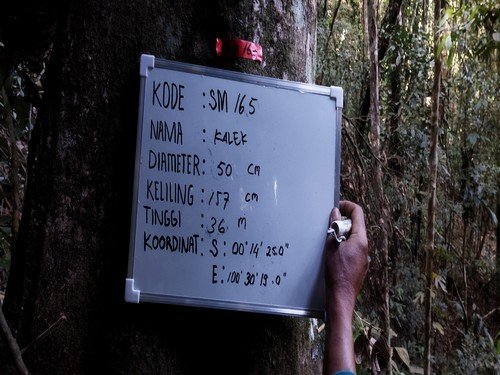 KODE : SM 165
NAMA : KALEK
DIAMETER : 50 cm
KELILING : 157 cm
TINGGI : 36 m
KOORDINAT : S : 00° 14' 25.0"
E : 100° 30' 19.0"